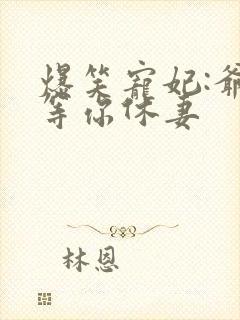 爆笑寵妃:爺
等你休妻
林恩